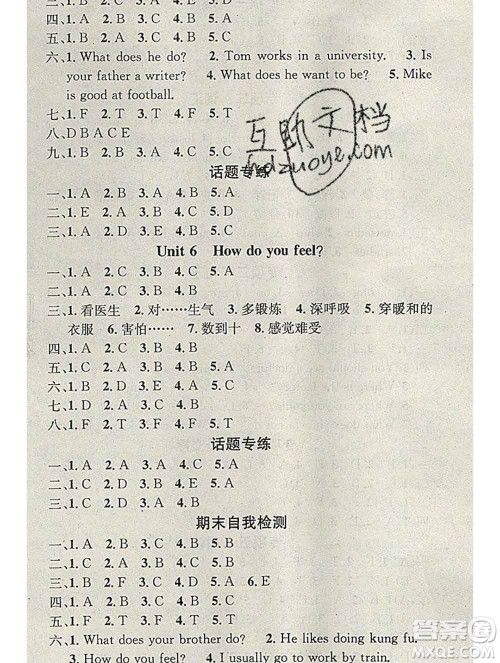 三、1. B 2. C 3. A 4. B 5. C
四、1. C 2. A 3. B 4. C
五、1. B 2. D 3. E 4. A 5. C
六、1. What does he do? 2. Tom works in a university. 3. Is
your father a writer? 4. What does he want to be? 5. Mike
is good at football.
七、1. F 2. T 3. T 4. F 5. T
八、D B A C E
九、1. B 2. C 3. B 4. A 5. B
互助文档
hdzuoye.com
话题专练
一、1. A 2. D 3. A 4. B 5. A
二、1. E 2. D 3. A 4. C
三、1. D 2. C 3. B 4. A 5. D
Unit 6 How do you feel?
一、1. A 2. B 3. C 4. B
二、1. A 2. C 3. A 4. B
三、1. 看医生 2. 对……生气 3. 多锻炼 4. 深呼吸 5. 穿暖和的
衣服 6. 害怕…… 7. 数到十 8. 感觉难受
四、1. A 2. C 3. B 4. B
五、1. C 2. D 3. E 4. A 5. B
六、1. C 2. D 3. A 4. B
七、1. B 2. A 3. B 4. B 5. C
八、1. F 2. T 3. F 4. F 5. T
话题专练
一、1. A 2. A 3. C 4. C 5. A
二、1. C 2. D 3. A 4. B
期末自我检测
一、1. A 2. B 3. B 4. C 5. B
二、1. C 2. B 3. B 4. C 5. A
三、1. B 2. F 3. C 4. D 5. A 6. E
四、1. D 2. A 3. B 4. C
五、1. B 2. B 3. A 4. A 5. B
六、1. What does your brother do? 2. He likes doing kung fu.
3. How do you feel? 4. I usually go to work by train.
答案圈
MXQE.COM